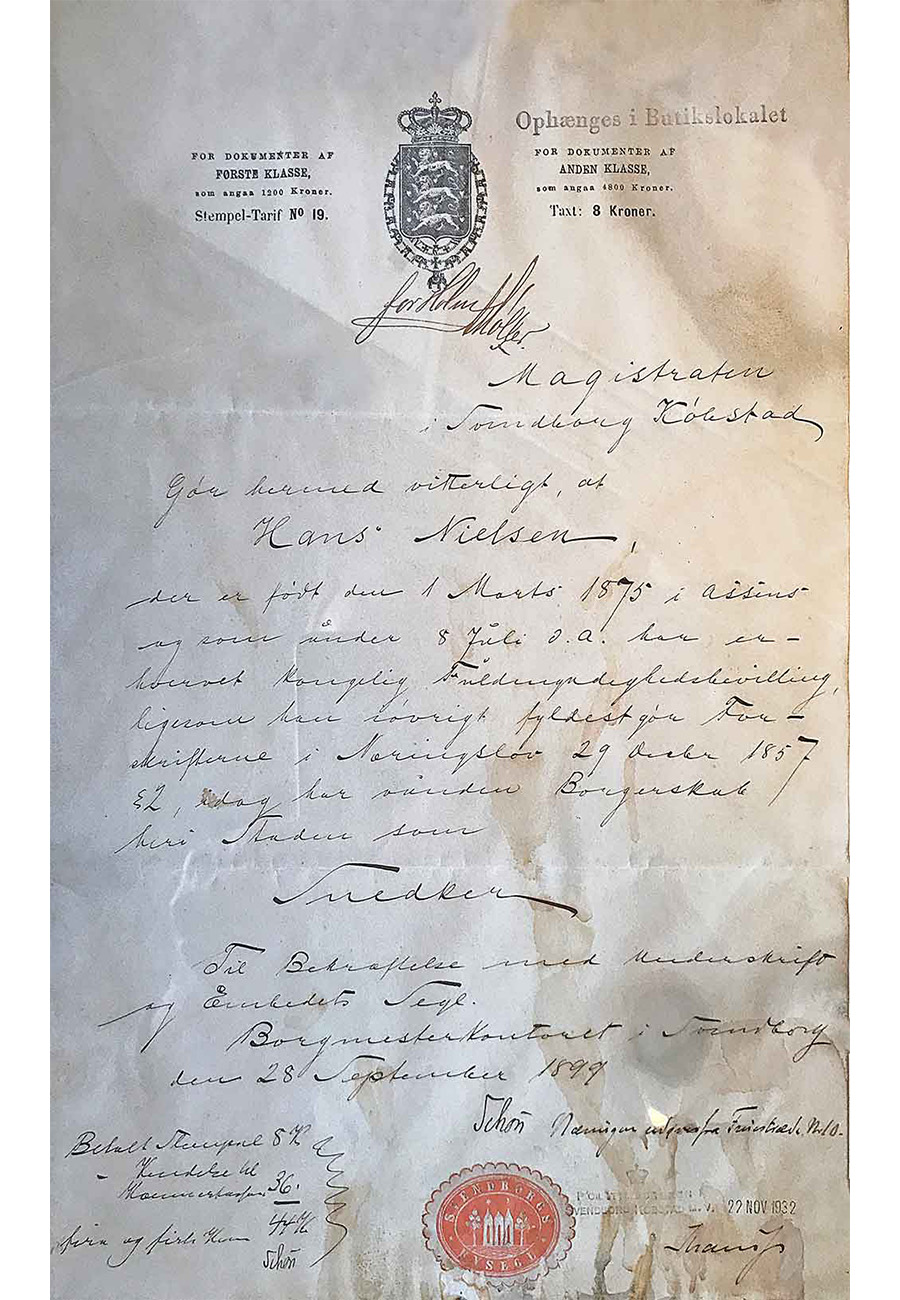 Ophænges i Butikslokalet
FOR DOKUMENTER AF
FØRSTE KLASSE,
som angaa 1200 Kroner.
Stempel-Tarif Nº 19.
FOR DOKUMENTER AF
ANDEN KLASSE,
som angaa 4800 Kroner.
Taxt: 8 Kroner.
Magistraten
i Svendborg Købstad
Gør hermed vitterligt, at
Hans Nielsen,
der er født den 1 Marts 1875 i Assens
og som under 8 Juli d.a. har er-
hvervet kongelig Fuldmyndighedsbevilling,
ligesom han iøvrigt fyldestgør For-
skrifterne i Næringslov 29 Decbr 1857
§2, idag har vunden Borgerskab
heri Staden som
Snedker
Til Bekræftelse med Underskrift
og Embedets Segl.
Borgmesterkontoret i Svendborg
den 28 September 1899
Schou
Næringen udøves fra
Betalt Stempel 8 K
- Kendelse til
Kæmnerkassen 36.
44 K
fire og firti Kr
Schou
SVENDBORGS BYSEGL
SVENDBORG KØBSTAD M. V. 22 NOV 1932